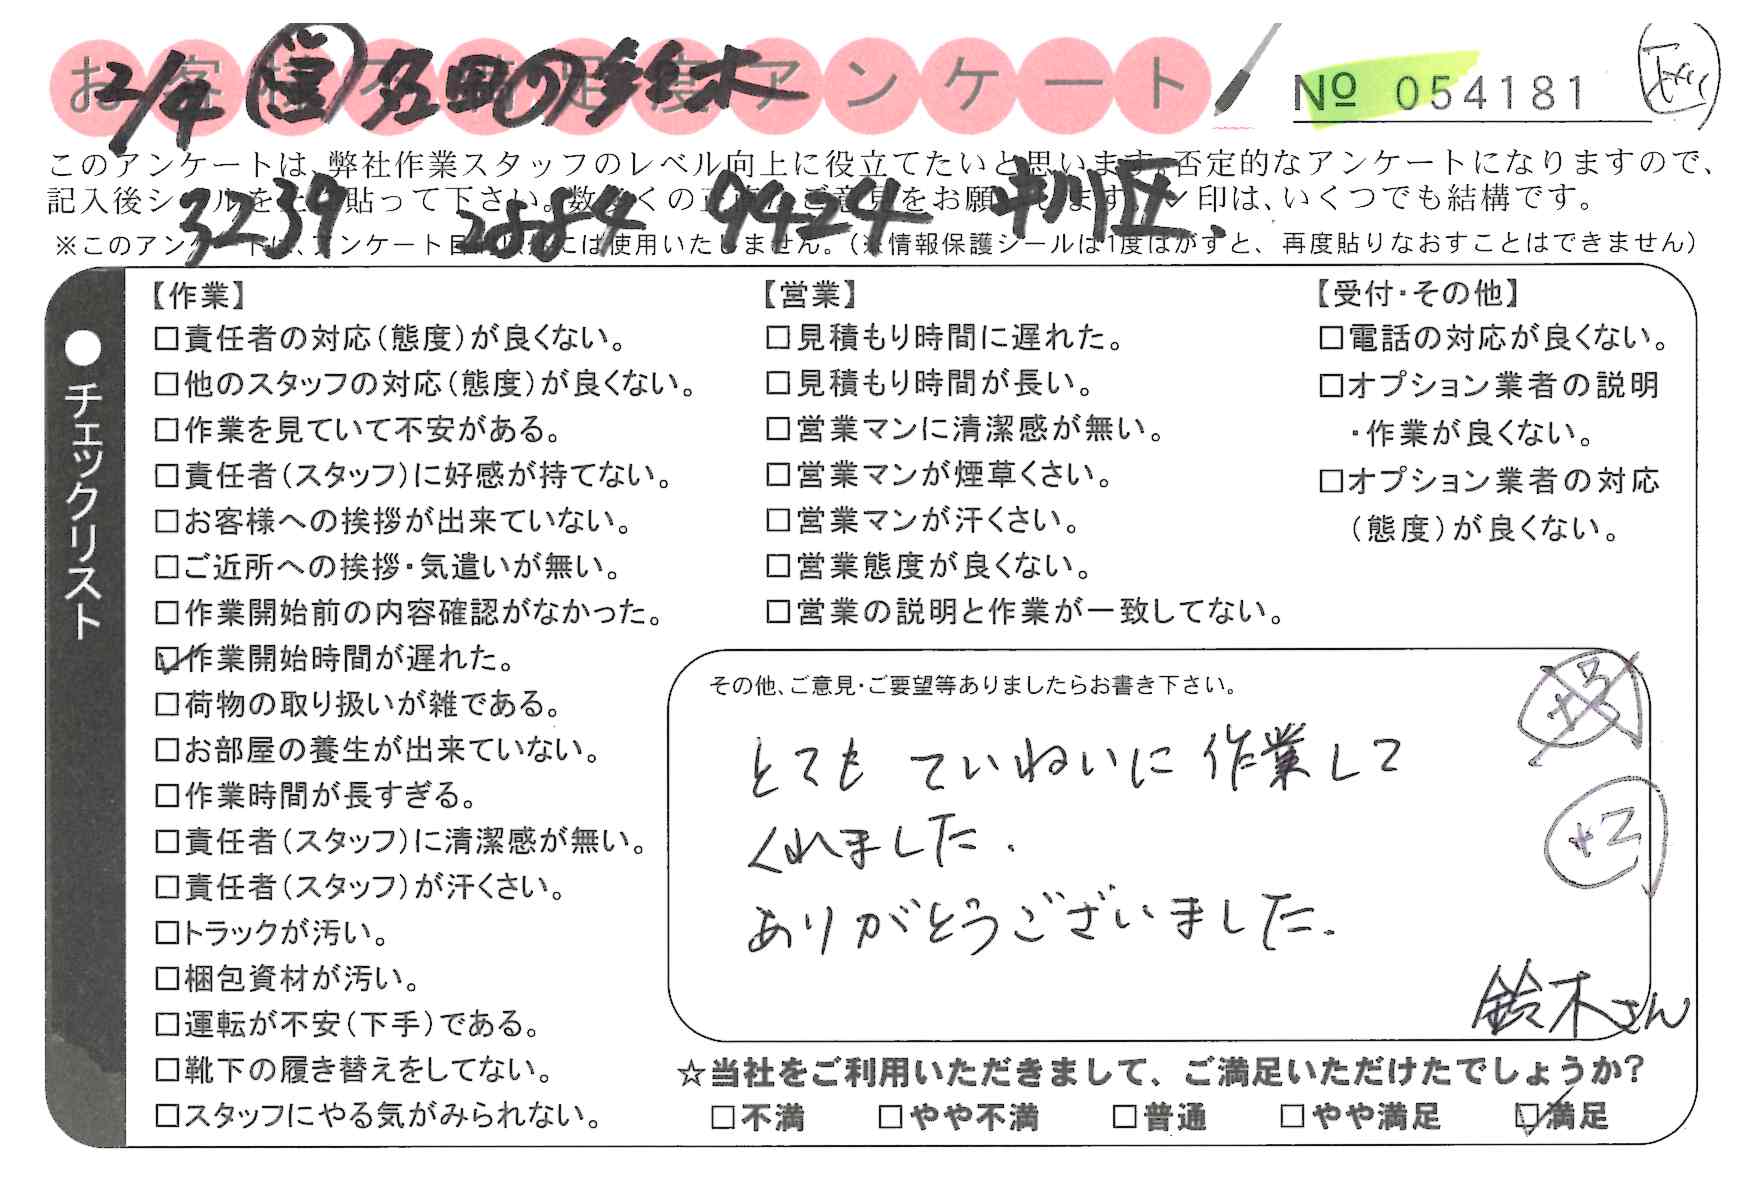 お客様不満足度アンケート
2/4 五田の鈴木
№ 054181
このアンケートは、弊社作業スタッフのレベル向上に役立てたいと思います。否定的なアンケートになりますので、
記入後シールを上に貼って下さい。数多くの正直なご意見をお願いします。レ印は、いくつでも結構です。
3239 2884 9424 中川区
※このアンケートは、アンケート目的以外には使用いたしません。（※情報保護シールは1度はがすと、再度貼りなおすことはできません）
●チェックリスト
【作業】
□責任者の対応（態度）が良くない。
□他のスタッフの対応（態度）が良くない。
□作業を見ていて不安がある。
□責任者（スタッフ）に好感が持てない。
□お客様への挨拶が出来ていない。
□ご近所への挨拶・気遣いが無い。
□作業開始前の内容確認がなかった。
☑作業開始時間が遅れた。
□荷物の取り扱いが雑である。
□お部屋の養生が出来ていない。
□作業時間が長すぎる。
□責任者（スタッフ）に清潔感が無い。
□責任者（スタッフ）が汗くさい。
□トラックが汚い。
□梱包資材が汚い。
□運転が不安（下手）である。
□靴下の履き替えをしてない。
□スタッフにやる気がみられない。
【営業】
□見積もり時間に遅れた。
□見積もり時間が長い。
□営業マンに清潔感が無い。
□営業マンが煙草くさい。
□営業マンが汗くさい。
□営業態度が良くない。
□営業の説明と作業が一致してない。
【受付・その他】
□電話の対応が良くない。
□オプション業者の説明
・作業が良くない。
□オプション業者の対応
（態度）が良くない。
その他、ご意見・ご要望等ありましたらお書き下さい。
とても ていねいに 作業して
くれました.
ありがとうございました.
+3
+2
鈴木さん
☆当社をご利用いただきまして、ご満足いただけたでしょうか？
□不満 □やや不満 □普通 □やや満足 ☑満足